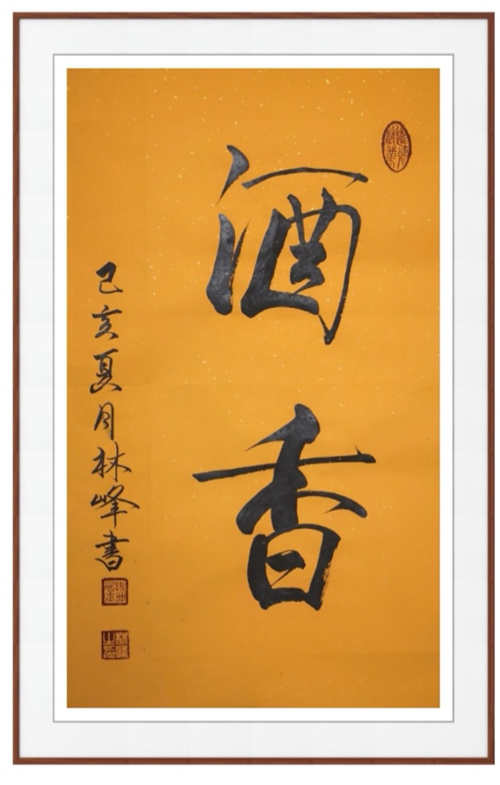 酒香
己亥夏月林峰書